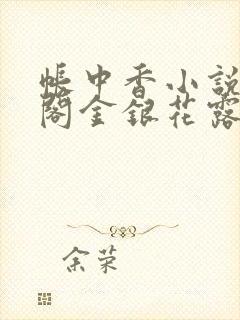 帳中香小說
閣金銀花露
余荣